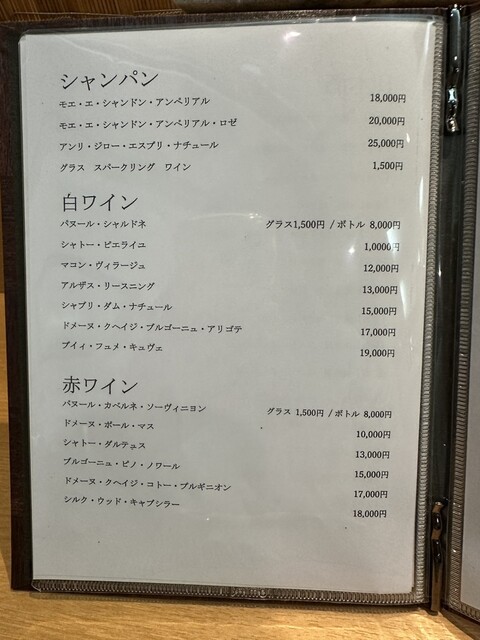 シャンパン
モエ・エ・シャンドン・アンペリアル 18,000円
モエ・エ・シャンドン・アンペリアル・ロゼ 20,000円
アンリ・ジロー・エスプリ・ナチュール 25,000円
グラス スパークリング ワイン 1,500円
白ワイン
パヌール・シャルドネ グラス1,500円 / ボトル 8,000円
シャトー・ピエライユ 1,0000円
マコン・ヴィラージュ 12,000円
アルザス・リースニング 13,000円
シャブリ・ダム・ナチュール 15,000円
ドメーヌ・クヘイジ・ブルゴーニュ・アリゴテ 17,000円
プイィ・フュメ・キュヴェ 19,000円
赤ワイン
パヌール・カベルネ・ソーヴィニヨン グラス 1,500円 / ボトル 8,000円
ドメーヌ・ポール・マス 10,000円
シャトー・ダルテュス 13,000円
ブルゴーニュ・ピノ・ノワール 15,000円
ドメーヌ・クヘイジ・コトー・ブルギニオン 17,000円
シルク・ウッド・キャプシラー 18,000円